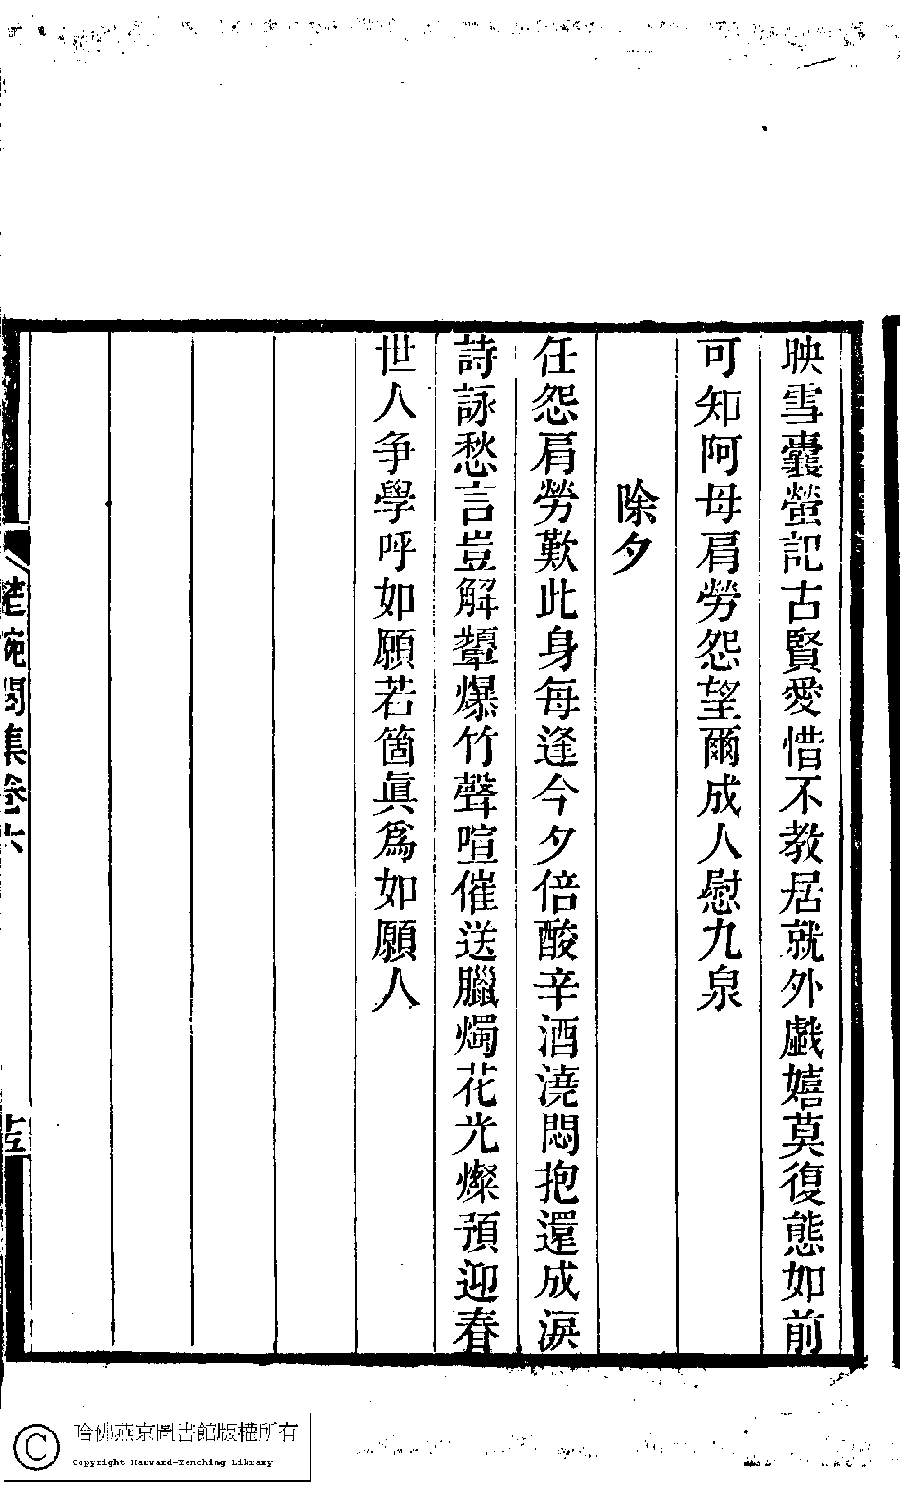 映雪囊螢記古賢愛惜不教居就外戲嬉莫復態如前
可知阿母肩勞怨望爾成人慰九泉
除夕
任怨肩勞歎此身每逢今夕倍酸辛酒澆悶抱還成淚
詩詠愁言豈解顰爆竹聲喧催送臘燭花光燦預迎春
世人爭學呼如願若箇眞爲如願人
集卷六
哈佛燕京圖書館版權所有
Copyright Harvard-Yenching Library